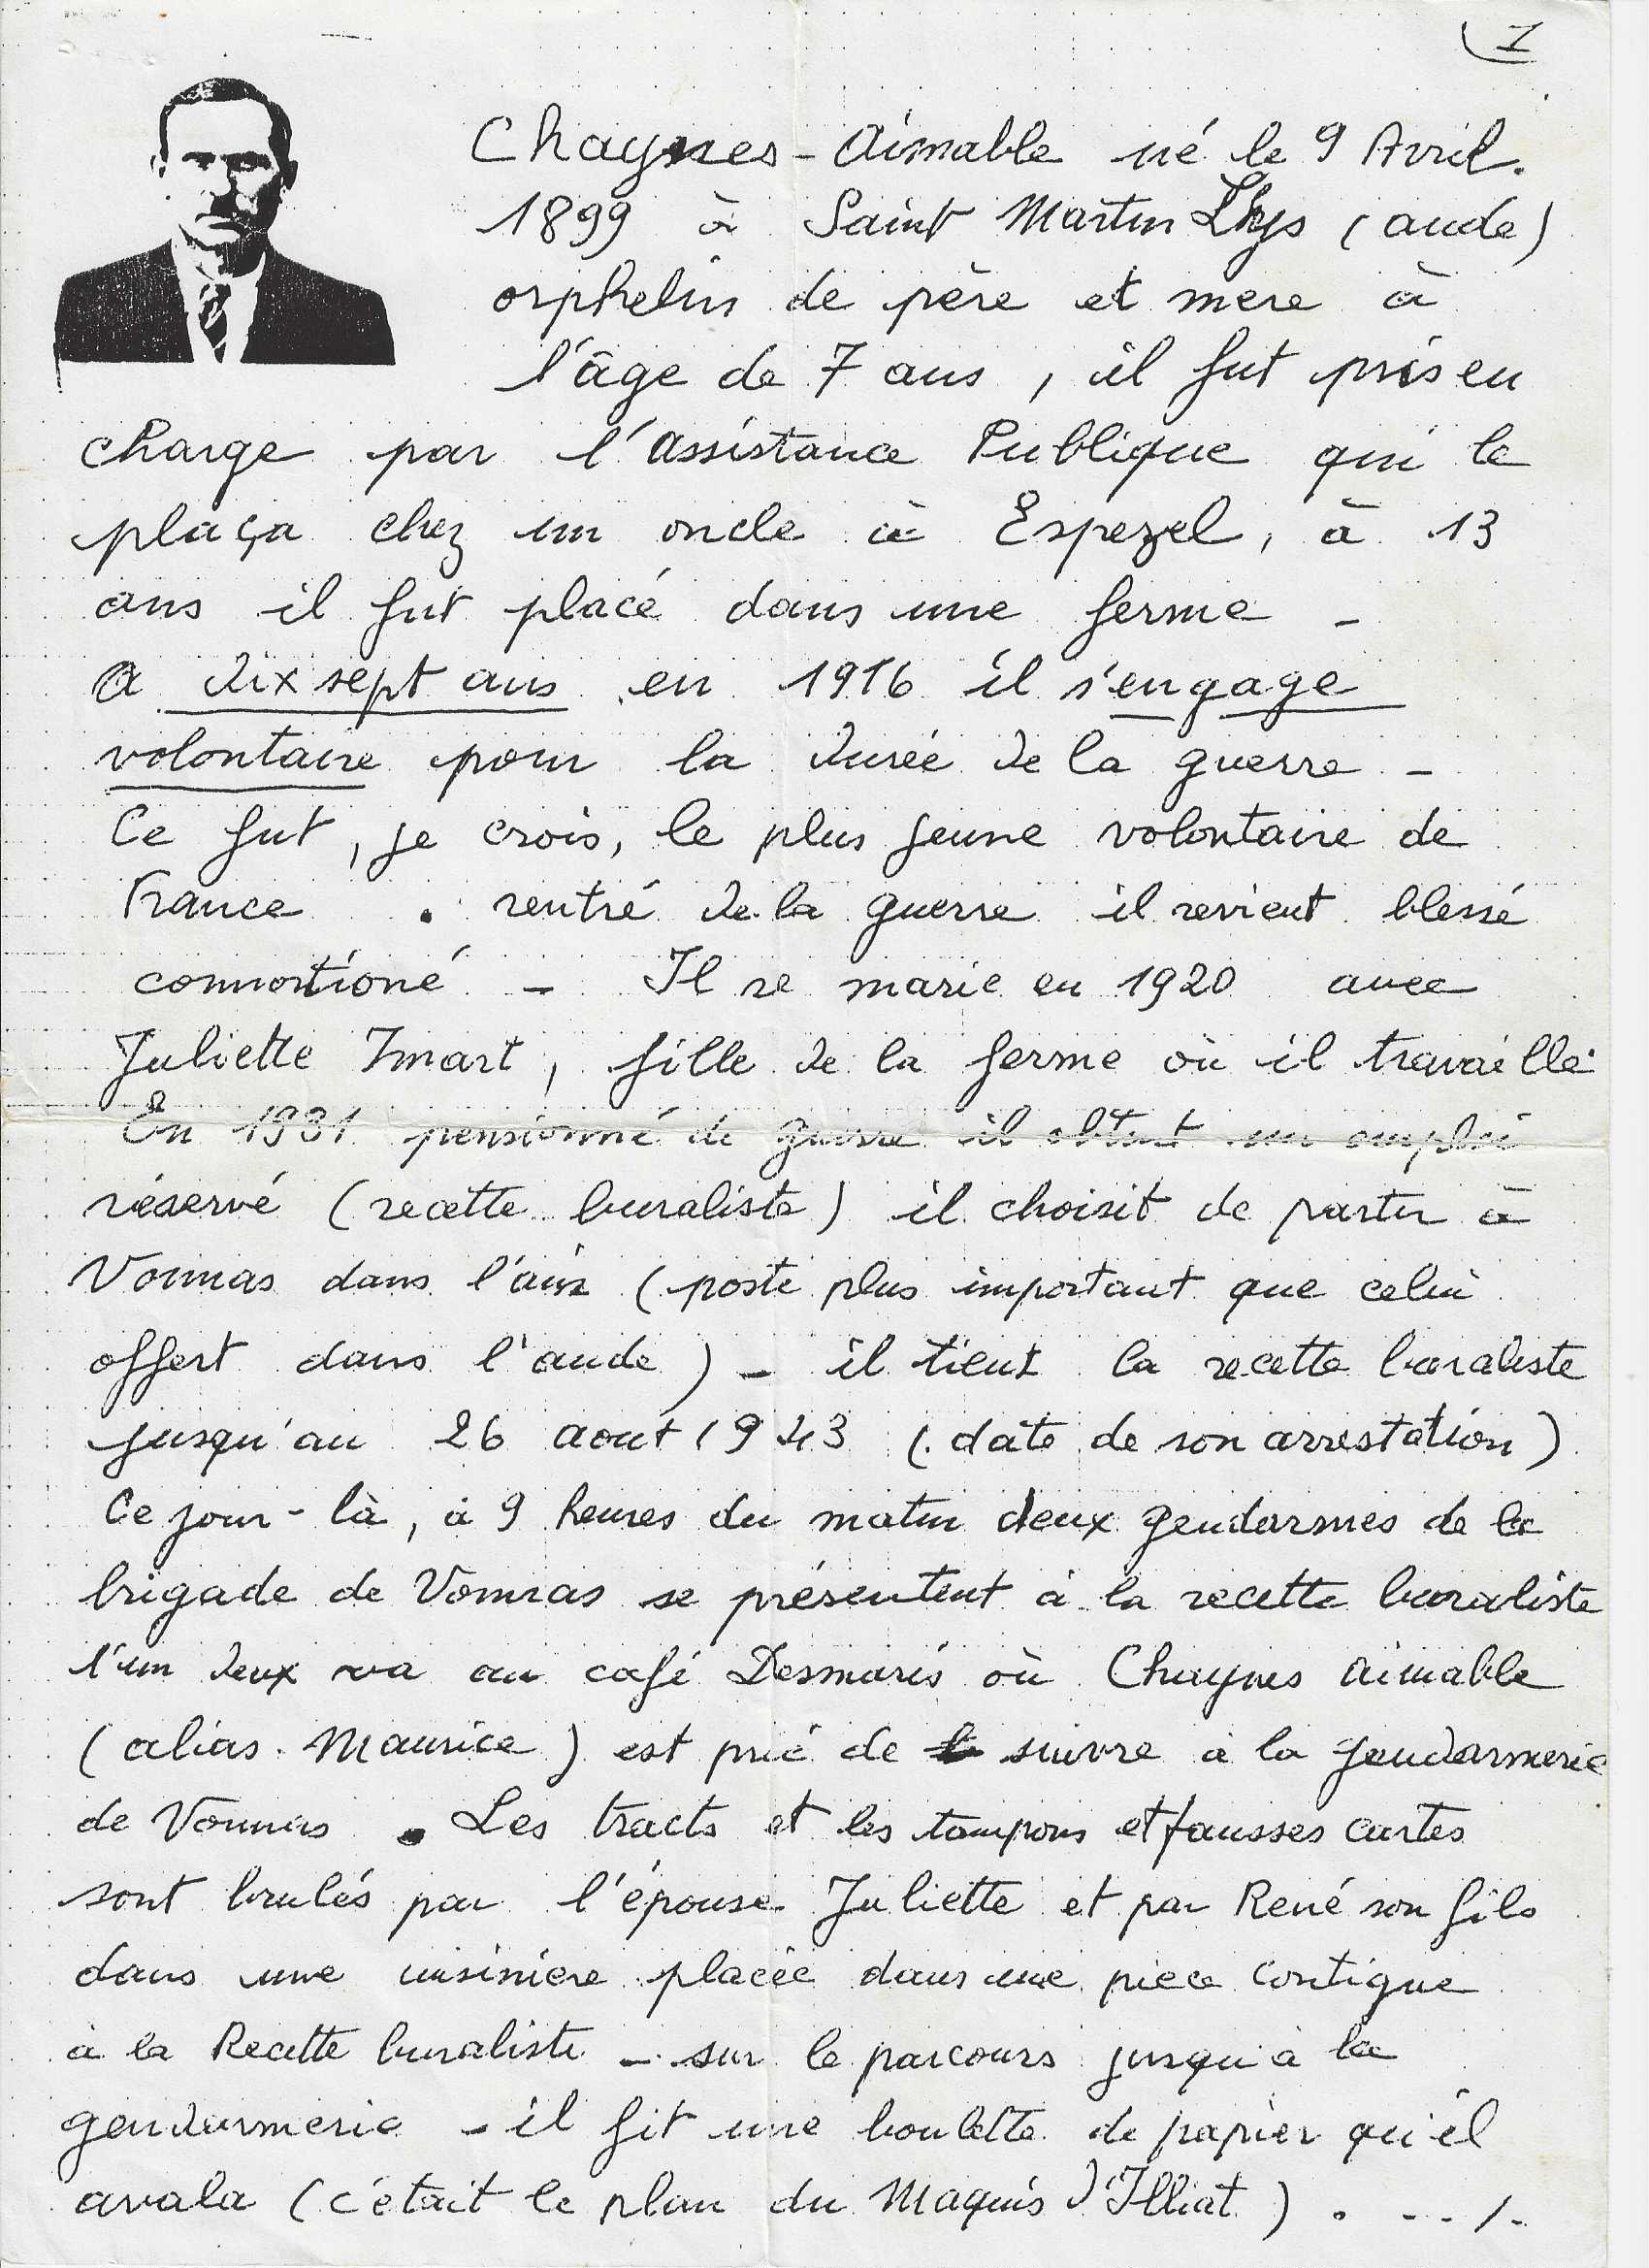 1
Chaynes - Aimable né le 9 Avril.
1899 à Saint Martin Lhys (aude)
orphelin de père et mere à
l'âge de 7 ans, il fut pris en
charge par l'assistance Publique qui le
plaça chez un oncle à Espezel, à 13
ans il fut placé dans une ferme -
A dix sept ans en 1916 il s'engage
volontaire pour la durée de la guerre -
Ce fut, je crois, le plus jeune volontaire de
France . rentré de la guerre il revient blessé
commotioné - Il se marie en 1920 avec
Juliette Imart, fille de la ferme où il travaille
En 1931 pensionné de guerre il obtint un emploi
réservé (recette buraliste) il choisit de partir à
Vonnas dans l'ain (poste plus important que celui
offert dans l'aude) - il tient la recette buraliste
jusqu'au 26 aout 1943 (date de son arrestation)
Ce jour-là, à 9 heures du matin deux gendarmes de la
brigade de Vonnas se présentent à la recette buraliste
l'un deux va au café Desmaris où Chaynes aimable
(alias Maurice) est prié de suivre à la gendarmerie
de Vonnas . Les tracts et les tampons et fausses cartes
sont brulés par l'épouse Juliette et par René son fils
dans une cuisiniere placée dans une piece contigue
à la Recette buraliste - sur le parcours jusqu'à la
gendarmerie - il fit une boulette de papier qu'il
avala (c'était le plan du Maquis d'Illiat) . - - . / -